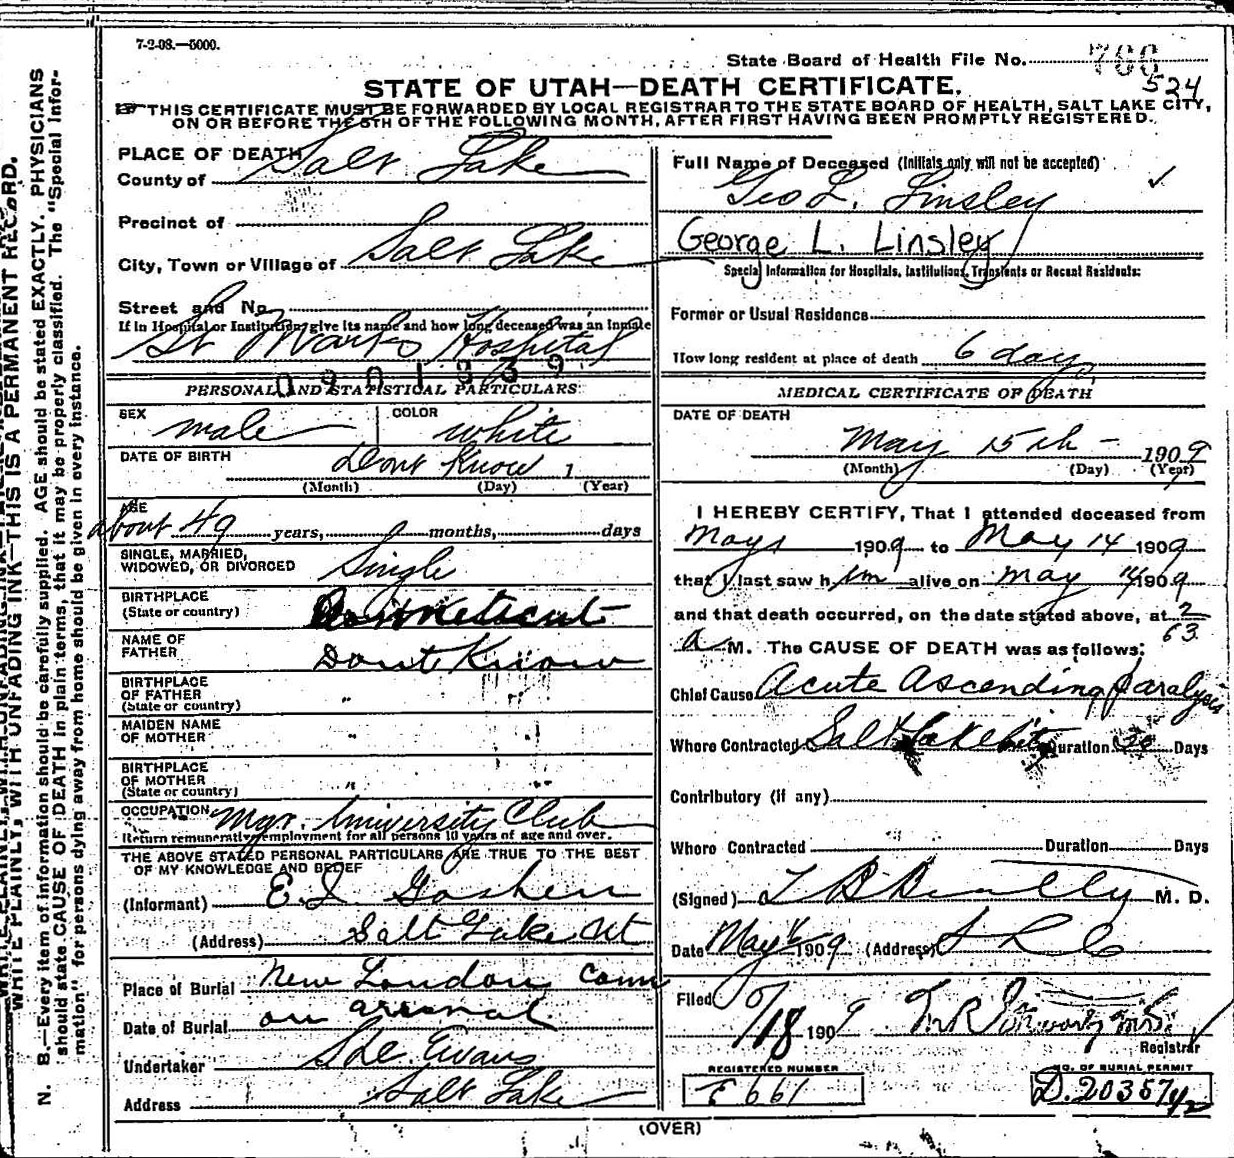 7-2-08.—5000.
State Board of Health File No. 766
524
STATE OF UTAH—DEATH CERTIFICATE.
THIS CERTIFICATE MUST BE FORWARDED BY LOCAL REGISTRAR TO THE STATE BOARD OF HEALTH, SALT LAKE CITY,
ON OR BEFORE THE 5TH OF THE FOLLOWING MONTH, AFTER FIRST HAVING BEEN PROMPTLY REGISTERED.
WRITE PLAINLY, WITH UNFADING INK—THIS IS A PERMANENT RECORD.
N. B.—Every item of information should be carefully supplied. AGE should be stated EXACTLY. PHYSICIANS
should state CAUSE OF DEATH in plain terms, that it may be properly classified. The "Special Infor-
mation" for persons dying away from home should be given in every instance.
PLACE OF DEATH
County of Salt Lake
Precinct of
City, Town or Village of Salt Lake
Street and No.
If in Hospital or Institution, give its name and how long deceased was an Inmate
St Marks Hospital
0901839
PERSONAL AND STATISTICAL PARTICULARS
SEX male COLOR white
DATE OF BIRTH Dont Know 1
(Month) (Day) (Year)
AGE
about 49 years, months, days
SINGLE, MARRIED,
WIDOWED, OR DIVORCED Single
BIRTHPLACE
(State or country)
NAME OF
FATHER Dont Know
BIRTHPLACE
OF FATHER
(State or country) " "
MAIDEN NAME
OF MOTHER " "
BIRTHPLACE
OF MOTHER
(State or country) " "
OCCUPATION Mgr. University Club
Return remunerative employment for all persons 10 years of age and over.
THE ABOVE STATED PERSONAL PARTICULARS ARE TRUE TO THE BEST
OF MY KNOWLEDGE AND BELIEF
(Informant) E. I. Goshen
(Address) Salt Lake Ut
Place of Burial New London Conn
Date of Burial on arrival
Undertaker Evans
Address Salt Lake
Full Name of Deceased (Initials only will not be accepted)
Geo L. Linsley
George L. Linsley
Special Information for Hospitals, Institutions, Transients or Recent Residents:
Former or Usual Residence
How long resident at place of death 6 days
MEDICAL CERTIFICATE OF DEATH
DATE OF DEATH
May 15th - 1909
(Month) (Day) (Year)
I HEREBY CERTIFY, That I attended deceased from
May 9 1909 to May 14 1909
that I last saw him alive on May 14 1909
and that death occurred, on the date stated above, at 2
63
a M. The CAUSE OF DEATH was as follows:
Chief Cause Acute Ascending Paralysis
Where Contracted Salt Lake City Duration Days
Contributory (if any)
Where Contracted Duration Days
(Signed) M. D.
Date May 1909 (Address) S L C
Filed 5/18 1909
Registrar
REGISTERED NUMBER
E 661
NO. OF BURIAL PERMIT
D. 20357 1/2
(OVER)